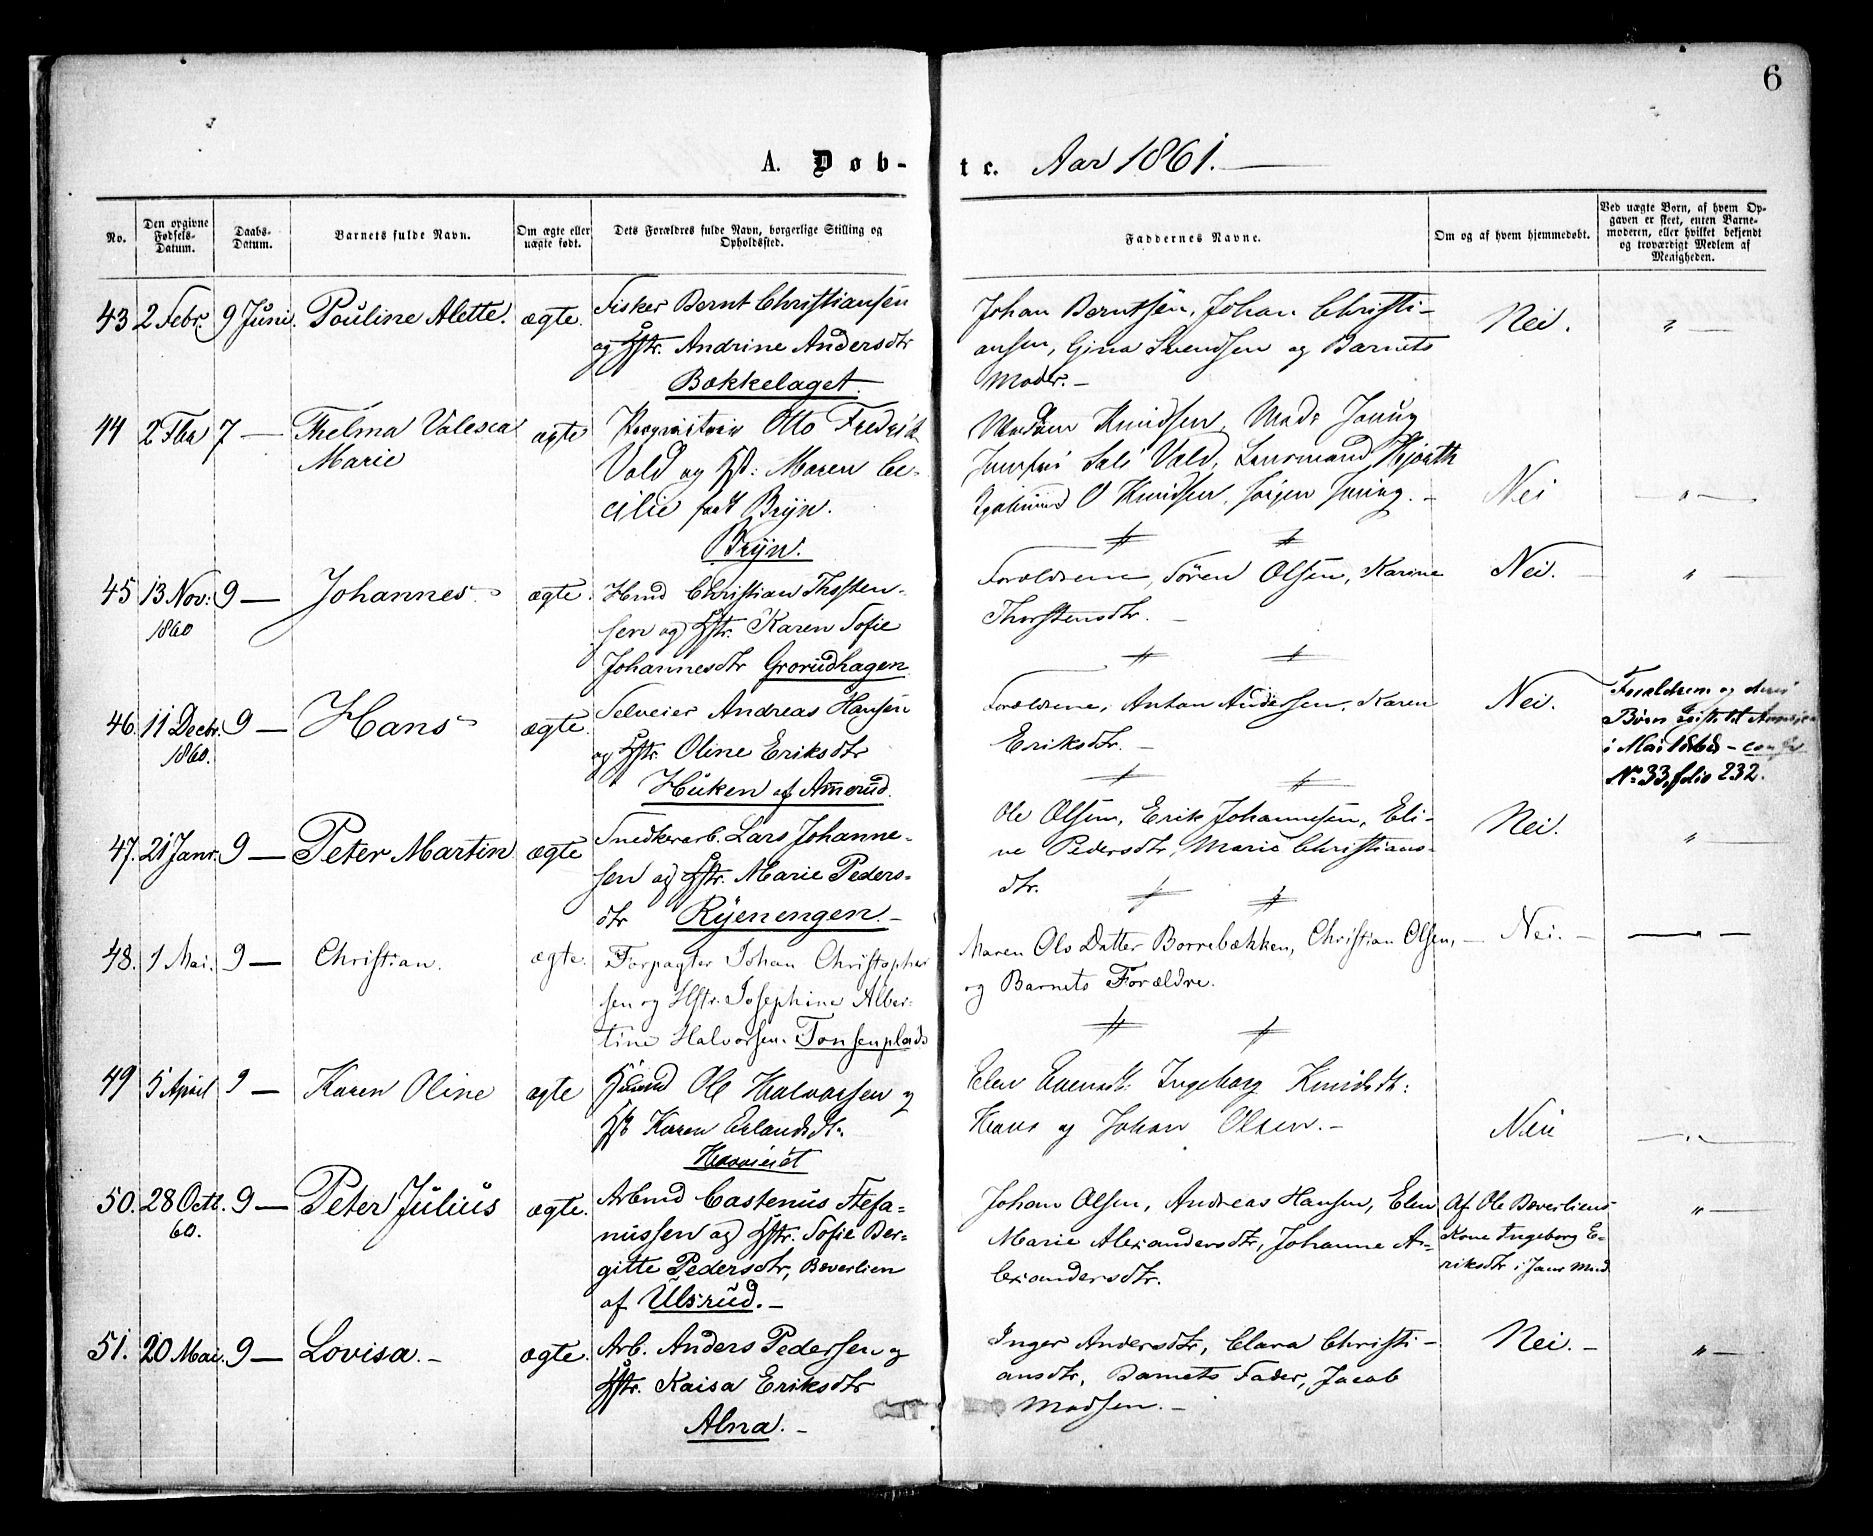 6
A. Døb-
te. Aar 1861.
No.
Den opgivne Fødsels-Datum.
Daabs-Datum.
Barnets fulde Navn.
Om ægte eller uægte født.
Dets Forældres fulde Navn, borgerlige Stilling og Opholdssted.
Faddernes Navne.
Om og af hvem hjemmedøbt.
Ved uægte Born, af hvem Op-
gaven er skeet, enten Barne-
moderen, eller hvilket bekjendt
og troværdigt Medlem af
Menigheden.
43 2 Febr. 9 Juni. Pouline Alette. ægte.
Fisker Bernt Christiansen
og Hstr. Andrine Andersdtr
Bækkelaget.
Johan Berntsen, Johan Christi-
ansen, Gina Svendsen og Barnets
Moder. -
Nei. " —
44 2 Fbr 7 — Thelma Valesca
Marie
ægte
Otto Fredrik
Vold og Hst: Maren Ce-
cilie født Bryn.
Bryn.
Madam Knudsen, Mad:
Vold, Lensmand Hjorth
O Knudsen, -
Nei — " —
45 13 Nov: 9 — Johannes ægte.
1860
Hmd Christian Thosten-
sen og Hstr. Karen Sofie
Johannesdtr Grorudhagen
Forældrene, Sören Olsen, Karine
Thorstensdtr. -
Nei. - " —
46. 11 Decbr. 9 — Hans ægte.
1860.
Selveier Andreas Hansen
og Hstr. Oline Eriksdtr
Huken af Ammerud.
Forældrene, Anton Andersen, Karen
Eriksdtr. -
Nei.
Forældrene og deres
Børn
i Mai
No 33, folio 232.
47. 21 Janr. 9 — Peter Martin ægte
Snedkerarb. Lars Johanne-
sen og Hstr. Marie Peders-
dtr Ryenengen. -
Ole Olsen, Erik Johannesen, Eli-
ne Pedersdtr, Marie Christians-
dtr.
Nei. " —
48. 1 Mai. 9 — Christian. ægte.
Forpagter Johan Christopher
sen og Hstr. Josephine Alber-
tine Halvorsen. Tonsenplads
Maren Ols Datter Borrebækken, Christian Olsen, -
og Barnets Forældre.
Nei. -
49 5 April 9 — Karen Oline ægte
Ole Halvorsen og
Hst Karen Erlandsdt:
Elen Ingeborg Knudsdt:
Hans og Johan Olsen. -
Nei
50. 28 Octb. 9 — Peter Julius ægte.
60.
Arbmd Castenus Stefa-
nussen og Hstr. Sofie Ber-
gitte Pedersdtr, Bøverlien
af Ulsrud. -
Johan Olsen, Andreas Hansen, Elen
Marie Alexandersdtr, Johanne A-
lexandersdtr.
Af Ole Bøverliens
Kone Ingeborg E-
riksdtr i Jans
" —
51. 20 Mai. 9 — Lovisa. - ægte.
Arb. Anders Pedersen og
Hstr. Kaisa Eriksdtr
Alna. -
Inger Andersdtr, Clara Christi-
ansdtr, Barnets Fader, Jacob
Madsen. -
Nei. - " —